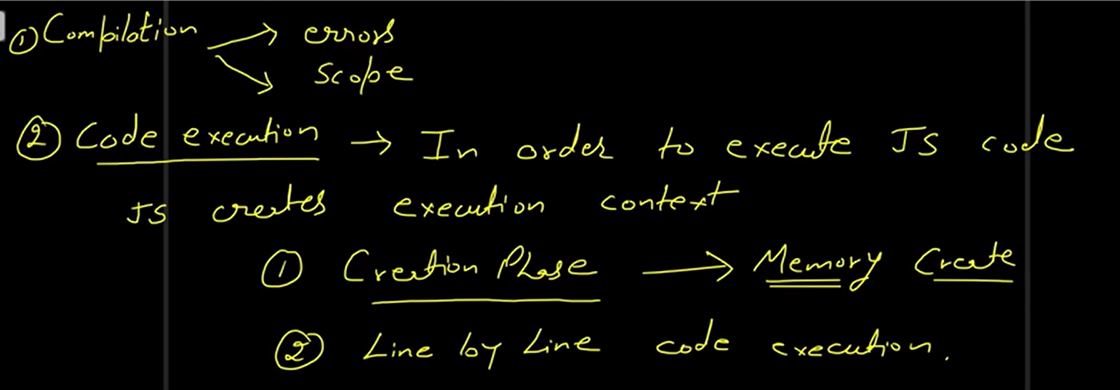 ① Compilation → errors
→ Scope
② Code execution → In order to execute JS code
JS creates execution context
① Creation Phase → Memory Create
② Line by Line code execution.